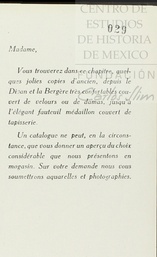 CENTRO DE
ESTUDIOS
DE HISTORIA
DE MEXICO
029
FUNDACIÓN
Carlos Slim
Madame,
Vous trouverez dans ce chapitre, quel-
ques jolies copies d'ancien, depuis le
Divan et la Bergère très confortables cou-
vert de velours ou de damas, jusqu'à
l'élégant fauteuil médaillon couvert de
tapisserie.
Un catalogue ne peut, en la circons-
tance, que vous donner un aperçu du choix
considérable que nous présentons en
magasin. Sur votre demande nous vous
soumettrons aquarelles et photographies.